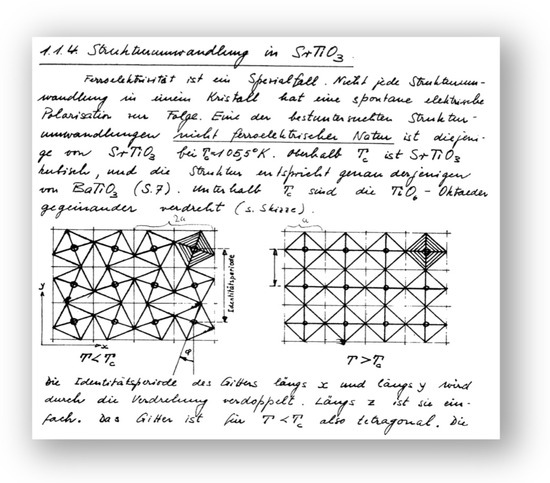 1.1.4. Strukturumwandlung in SrTiO3.
Ferroelektrizität ist ein Spezialfall. Nicht jede Strukturum-
wandlung in einem Kristall hat eine spontane elektrische
Polarisation zur Folge. Eine der bestuntersuchten Struktur-
umwandlungen nicht ferroelektrischer Natur ist diejeni-
ge von SrTiO3 bei Tc=105,5°K. Oberhalb Tc ist SrTiO3
kubisch, und die Struktur entspricht genau derjenigen
von BaTiO3 (S.7). Unterhalb Tc sind die TiO6-Oktaeder
gegeneinander verdreht (s. Skizze).
2a
a
Identitätsperiode
y
x
φ
T<Tc
T>Tc
Die Identitätsperiode des Gitters längs x und längs y wird
durch die Verdrehung verdoppelt. Längs z ist sie ein-
fach. Das Gitter ist für T<Tc also tetragonal. Die